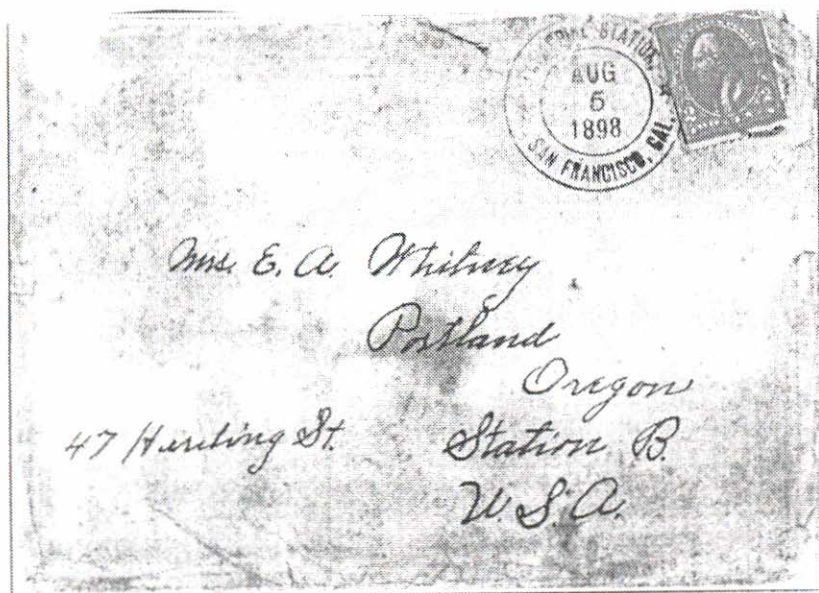 STATION,
AUG
5
1898
SAN FRANCISCO, CAL.
2 2
Mrs. E. A. Whitney
Portland
Oregon
47 St.
Station B.
U.S.A.